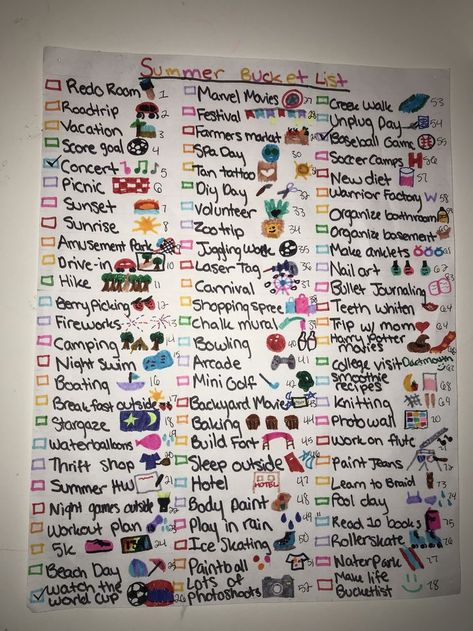 Summer Bucket List
Redo Room 1
Roadtrip 2
Vacation 3
Score goal 4
Concert 5
Picnic 6
Sunset 7
Sunrise 8
Amusement Park 9
Drive-in 10
Hike 11
Berry Picking 12
Fireworks 13
Camping 14
Night Swim 15
Boating 16
Breakfast outside 17
Stargaze 18
Waterballoons 19
Thrift shop 20
Summer HW 21
Night games outside 22
Workout plan 23
5k 24
Beach Day 25
watch the
world cup 26
Marvel Movies 27
Festival 28
Farmers market 29
Spa Day 30
Tan tattoo 31
Diy Day 32
Volunteer 33
Zootrip 34
Juggling Work 35
Laser Tag 36
Carnival 37
Shopping spree 38
Chalk mural 39
Bowling 40
Arcade 41
Mini Golf 42
Backyard Movie 43
Baking 44
Build Fort 45
Sleep outside 46
Hotel HOTEL 47
Body Paint 48
Play in rain 49
Ice Skating 50
Paintball 51
Lots of
photoshoots 52
Creek Walk 53
Unplug Day 54
Baseball Game 55
Soccer Camps 56
New diet 57
Warrior Factory W 58
Organize bathroom 59
Organize basement 60
Make anklets 61
Nail art 62
Bullet Journaling 63
Teeth whiten 64
Trip w/ mom 64
Harry Potter
movies
College visit Dartmouth
smoothie
recipes 68
Knitting
Photowall 70
Work on flute
Paint Jeans
Learn to Braid 73
Pool day 74
Read 10 books 75
Rollerskate 76
Water Park 77
Make life
Bucketlist 78